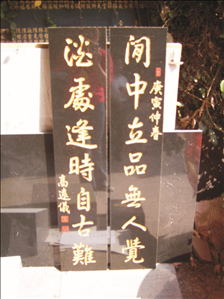 庚寅仲春
閒中立品無人覺
淡處逢時自古難
高 儀